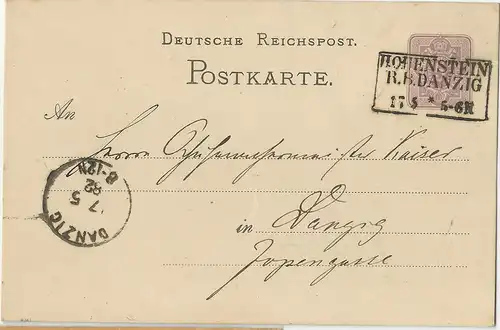 DEUTSCHE REICHSPOST.
POSTKARTE.
HOHENSTEIN
R.B. DANZIG
17 5 * 5-6N
An
Herrn Kaiser
in Danzig
Jopengasse
DANZIG
17 5
82
8-12N